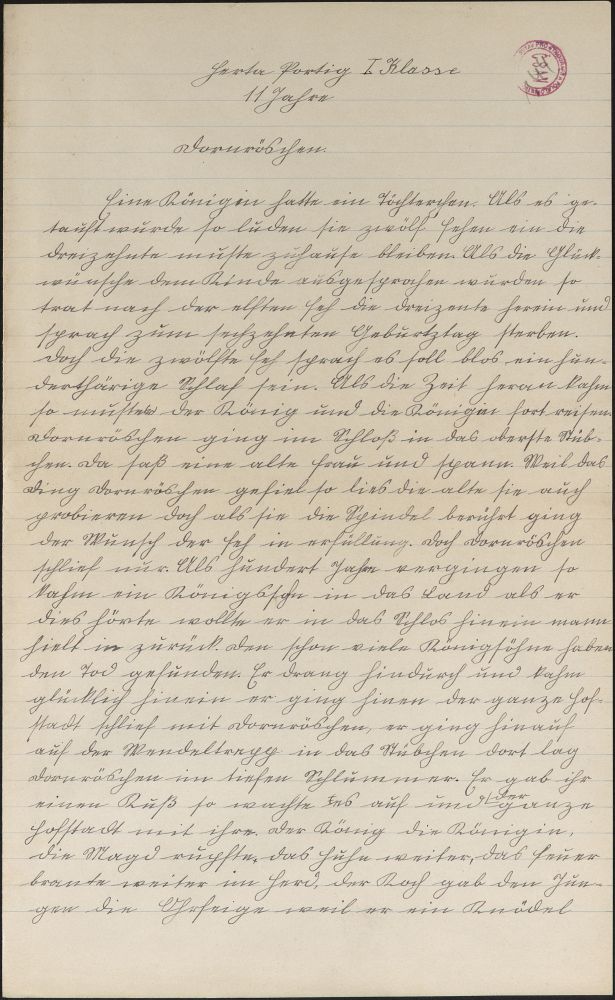 Herta Portig I Klasse
11 Jahre
Dornröschen.
Eine Königin hatte ein Töchterchen. Als es ge-
tauft wurde so luden sie zwölf Fehen ein die
dreizehnte muste zuhause bleiben. Als die Glück-
wünsche dem Kinde ausgesprochen wurden so
trat nach der elften Feh die dreizente herein und
sprach zum sechzehnten Geburtztag sterben.
Doch die zwölfte Feh sprach es soll blos ein hun-
derthärige Schlaf sein. Als die Zeit heran kahm
so musten der König und die Königin fort reisen.
Dornröschen ging im Schloß in das oberste Stüb-
chen. Da saß eine alte Frau und spann. Weil das
Ding Dornröschen gefiel so lies die alte sie auch
probieren doch als sie die Spindel berührt ging
der Wunsch der Feh in erfüllung. Doch Dornröschen
schlief nur. Als hundert Jahre vergingen so
kahm ein Königssohn in das Land als er
dies hörte wollte er in das Schlos hinein mann
hielt in zurück. Den schon viele Königsöhne haben
den Tod gefunden. Er drang hindurch und kahm
glücklich hinein er ging hinen der ganze Hof-
stadt schlief mit Dornröschen, er ging hinauf
auf der Wendeltrepp in das Stübchen dort lag
Dornröschen im tiefen Schlummer. Er gab ihr
einen Kuß so wachte es auf und der ganze
Hofstadt mit ihr. Der König die Königin,
die Magd rupfte das Huhn weiter, das Feuer
brante weiter im Herd, der Koch gab den Jun-
gen die Ohrfeige weil er ein Knödel